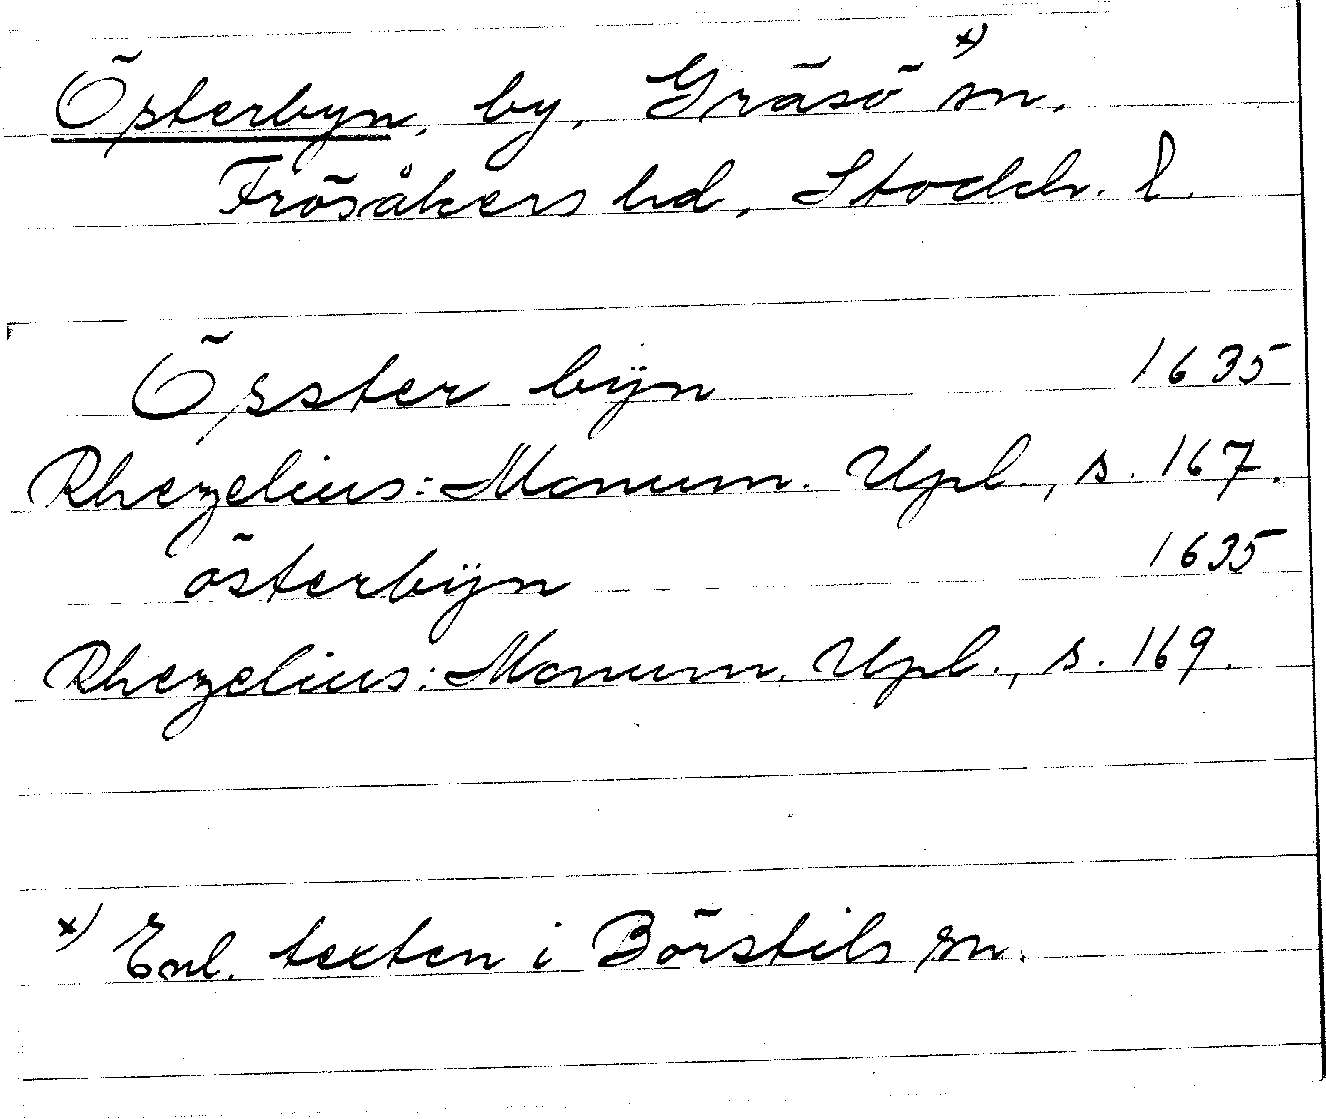 Österbyn, by, Gräsö x) sn.
Frösåkers hd, Stockh. l.
Össter bÿn 1635
Rhezelius: Monum. Upl., s. 167.
österbÿn 1635
Rhezelius: Monum. Upl., s. 169.
x) Enl. texten i Börstils sn.